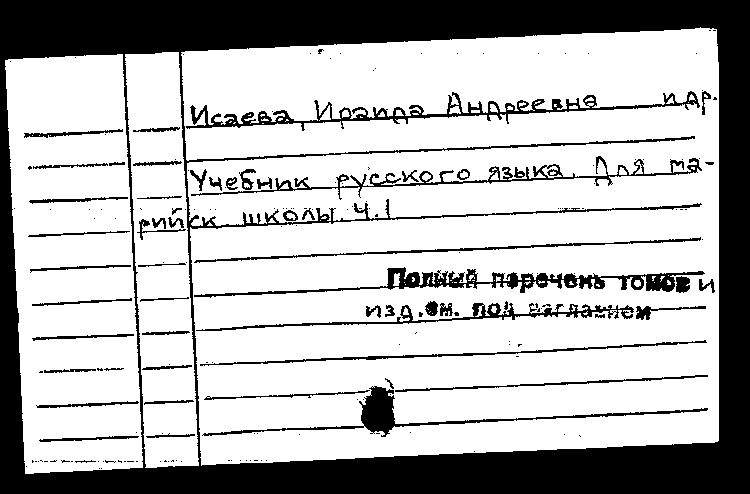 Исаева, Ираида Андреевна и др.
Учебник русского языка. Для ма-
рийск школы. Ч.1
Полный перечень томов и
изд. см. под заглавием